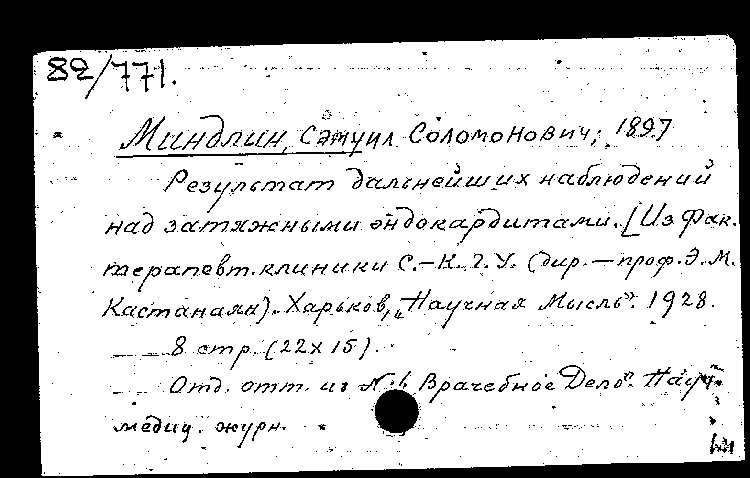 82/771.
Миндлин, Самуил Соломонович, 1897
Результат дальнейших наблюдений
над затяжными эндокардитами. [Из Фак.
терапевт. клиники С.-К. Г. У. (дир. — проф. Э. М.
Кастанаян). Харьков, „Научная Мысль". 1928.
8 стр. (22x15).
Отд. отт. из Врачебное Дело". Науч.
медиц. журн.